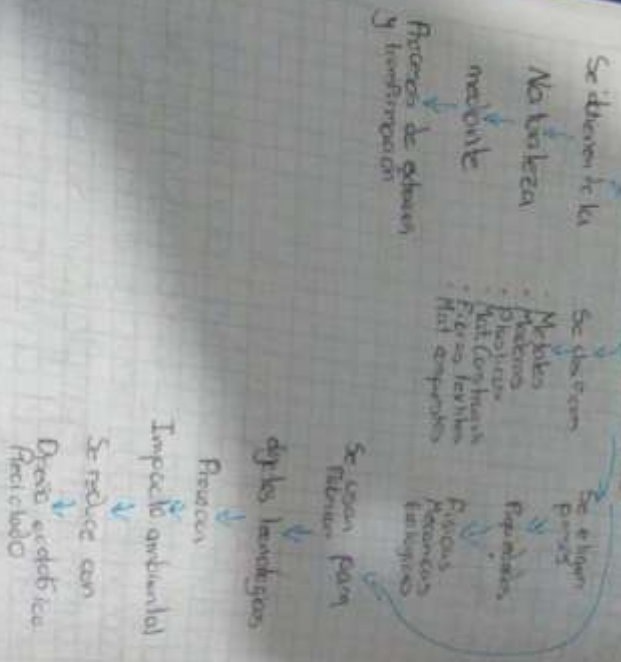 Se obtienen de la
Naturaleza
mediante
Procesos de
y transformación
Se clasifican
Metales
Maderas
Plásticos
Mat
Fibras textiles
Mat
Se eligen
por sus
Propiedades
Físicas
Mecánicas
Ecológicas
Se usan para
Fabricar
objetos tecnológicos
Provocan
Impacto ambiental
Se reduce con
Diseño
Reciclado